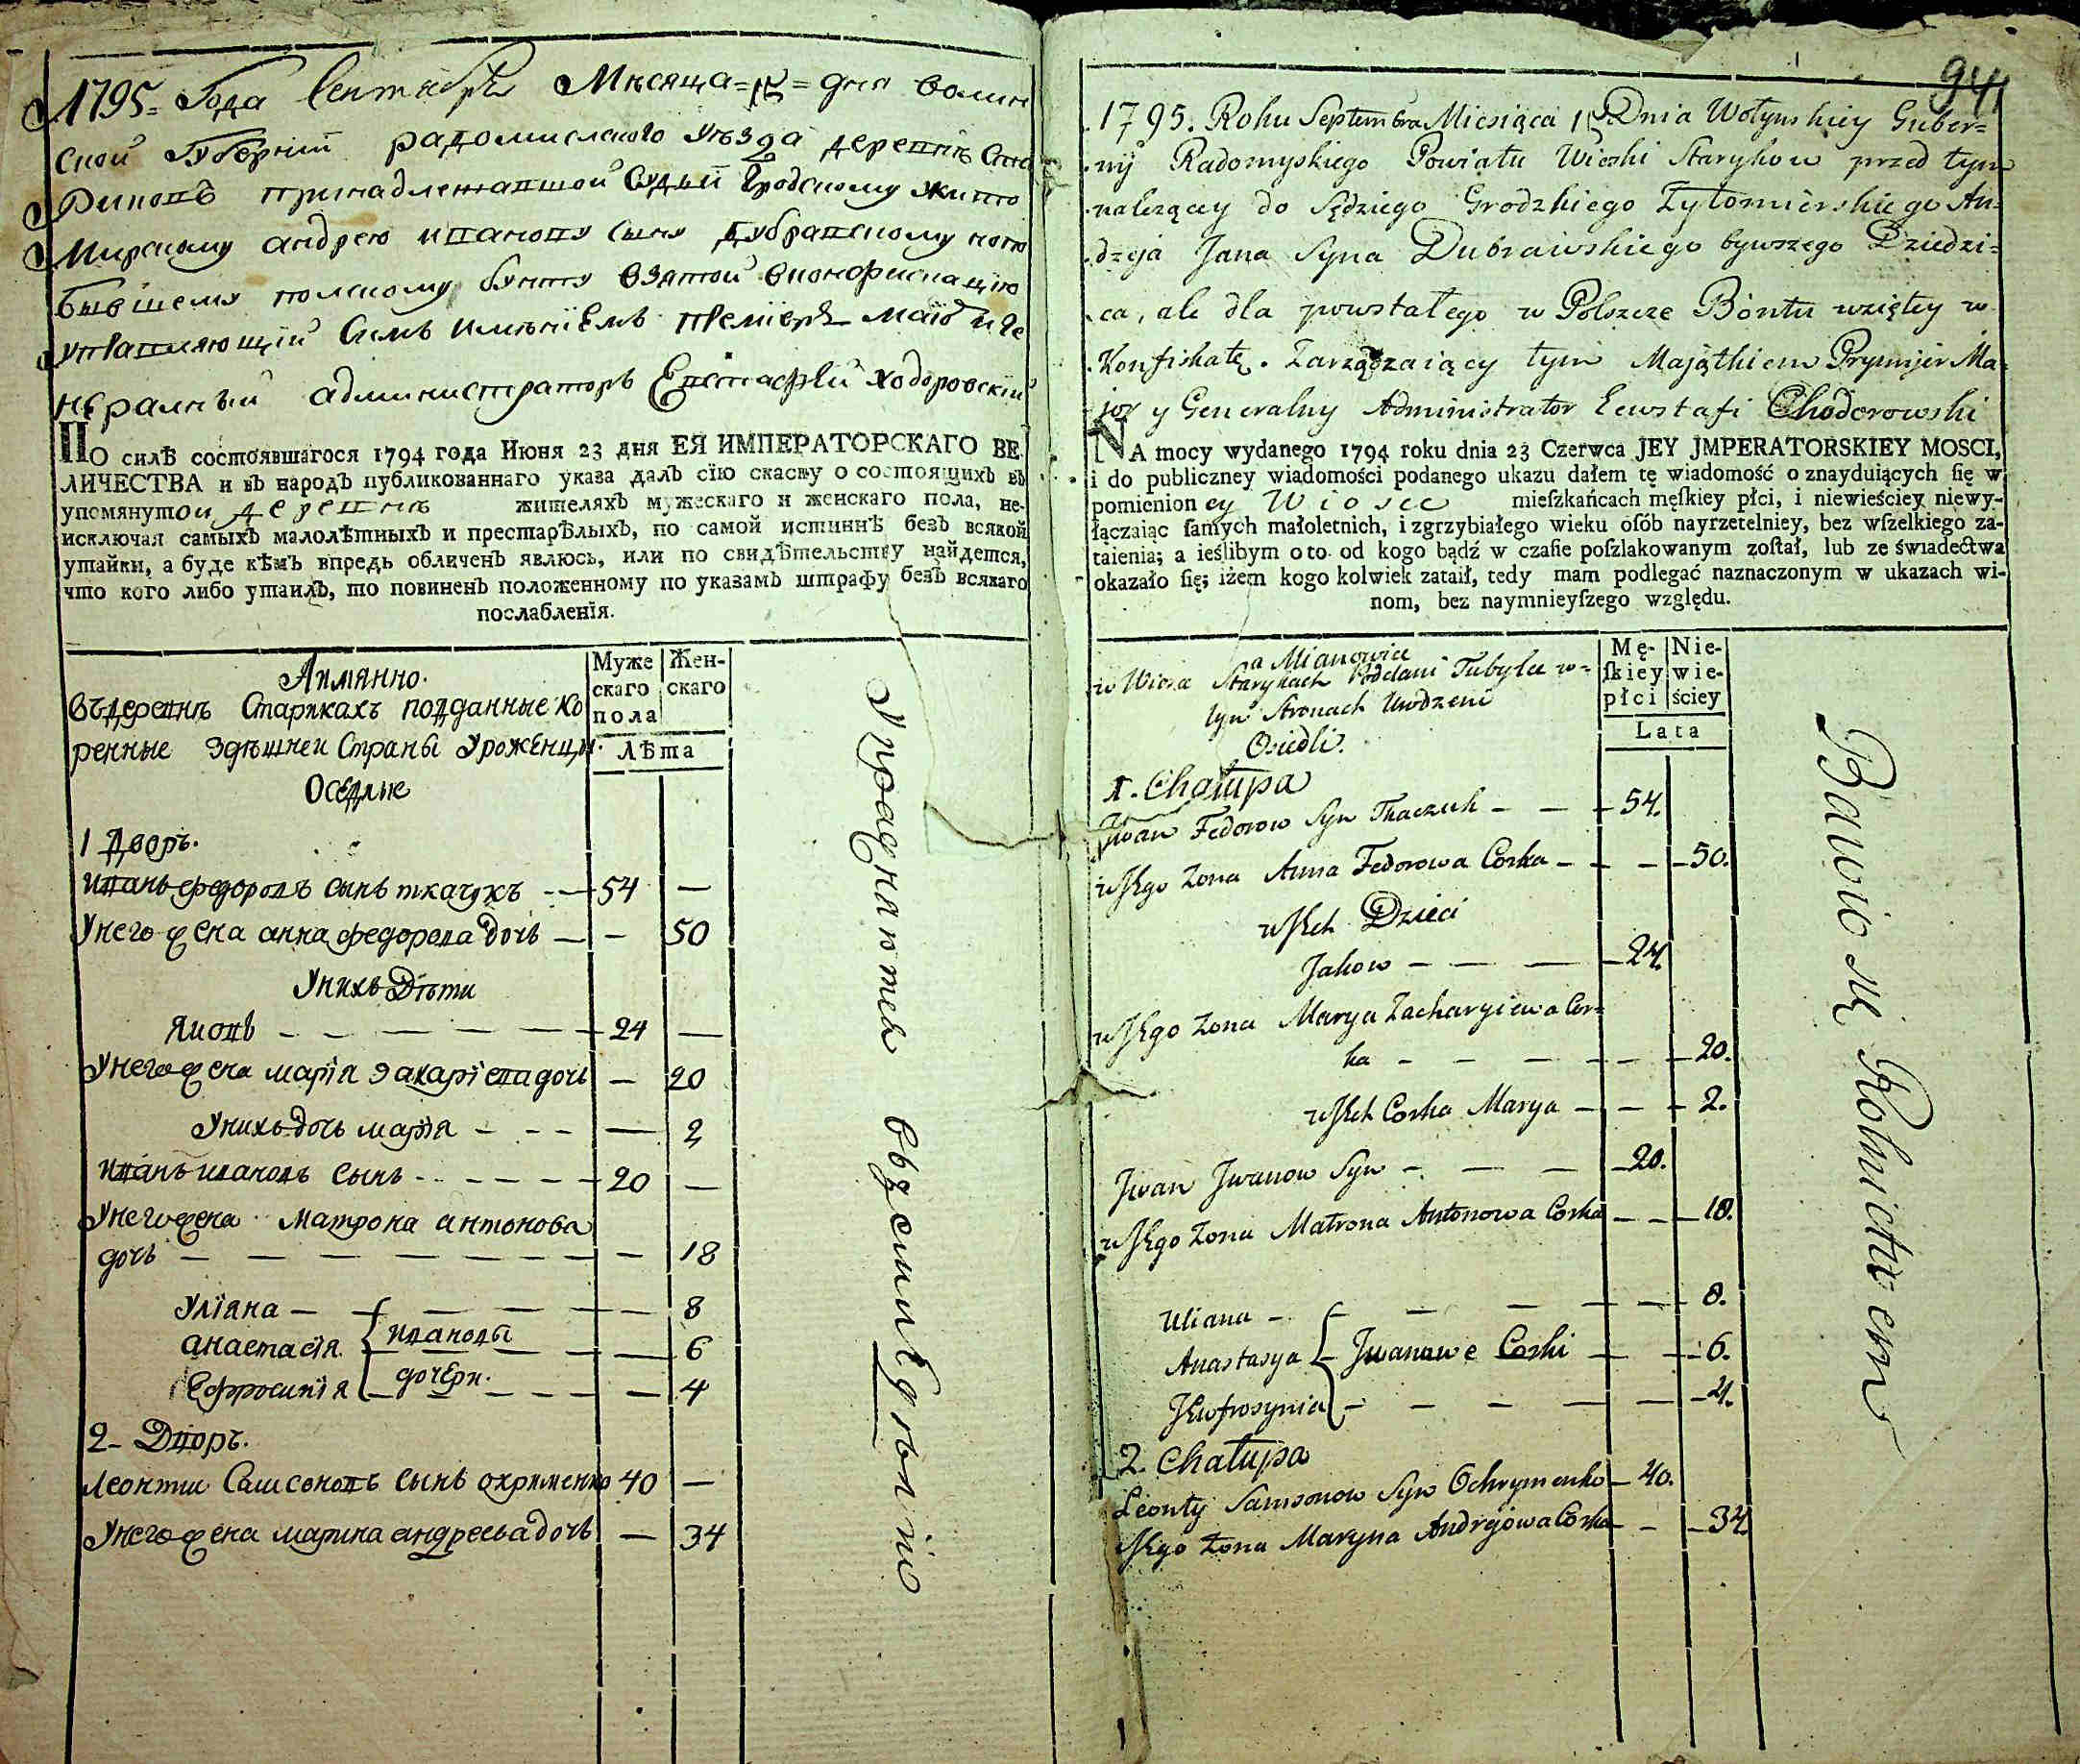 1795= Года Сентября Мѣсяца =15= дня волин
ской Губернии радомислского уѣзда деревнѣ Ста
риковъ принадлежавшой Судьи Гродскому жито
мирскому андрею иванову сыну дубравскому
бывшему полскому бунту взятой вконфискацию
управляющий симъ имѣниемъ премиеръ маиоръ и ге
неральный администраторъ Евстафий ходоровский
ПО силѣ состоявшагося 1794 года Июня 23 дня ЕЯ ИМПЕРАТОРСКАГО ВЕ-
ЛИЧЕСТВА и въ народъ публикованнаго указа далъ сїю скаску о состоящихъ въ
упомянутои деревнѣ жителяхъ мужескаго и женскаго пола, не-
исключая самыхъ малолѣтныхъ и престарѣлыхъ, по самой истиннѣ безъ всякой
утайки, а буде кѣмъ впредь обличенъ явлюсь, или по свидѣтельству найдется,
что кого либо утаилъ, то повиненъ положенному по указамъ штрафу безъ всякаго
послабленїя.
Аимянно.
Въдеревнѣ Старикахъ подданные ко
ренные здѣшнеи Страны Уроженцы.
Оседлые
Муже
скаго
пола
Жен-
скаго
Лѣта
1 Дворъ.
иванъ федоровъ сынъ ткачукъ - — 54 —
Унего жена анна федорова дочь — — 50
Унихъ Дѣти
Яковъ — — — — — 24 —
Унего жена марїя захарїева дочь — 20
Унихъ дочь марїя - - - — 2
иванъ ивановъ сынъ - - - - - 20 —
Унего жена матрона антонова
дочь — — — — — — — 18
Улїяна — — — — — — 8
анастасїя { ивановы — — — 6
Ефросинїя дочери. — — — — 4
2- Дворъ.
Леонтии Самсоновъ сынъ охрименко 40 —
Унего жена марина андреева дочь — 34
Упражняются въ земледѣлию
94
1795. Roku Septembra Miesiąca 15 Dnia Wołynskiey Guber=
nij Radomyskiego Powiatu Wioski Starykow przed tym
nalezącey do Sędziego Grodzkiego Zytomierskiego An=
drzeja Jana Syna Dubrawskiego bywszego Dziedzi=
ca, ale dla powstałego w Polszcze Bontu wzięty w
Konfiskatę. Zarządzaiący tym Maiątkiem Prymjer Ma=
jor y Generalny Administrator Eewstafi Chodorowski
NA mocy wydanego 1794 roku dnia 23 Czerwca JEY JMPERATORSKIEY MOSCI,
i do publiczney wiadomości podanego ukazu dałem tę wiadomość o znayduiących ſię w
pomienioney Wiosce mieſzkańcach męſkiey płci, i niewieściey niewy-
łączaiąc ſamych małoletnich, i zgrzybiałego wieku oſób nayrzetelniey, bez wſzelkiego za-
taienia; a ieślibym o to od kogo bądź w czaſie poſzlakowanym zoſtał, lub ze świadectwa
okazało ſię; iżem kogo kolwiek zataił, tedy mam podlegać naznaczonym w ukazach wi-
nom, bez naymnieyſzego względu.
a Mianowicie
w Wiosce Starykach Poddani Tubylce w=
tyw Stronach Urodzeni
Osiedli.
Mę-
ſkiey
płci
Nie-
wie-
ściey
Lata
1. Chałupa
Jwan Fedorow Syn Tkaczuk — — — 54.
u Jego Zona Anna Fedorowa Corka — — — 50.
u Jch Dzieci
Jakow — — — — 24.
u Jego Zona Marya Zacharyiewa Cor=
ka — — — — — — 20.
u Jch Corka Marya — — — 2.
Jwan Jwanow Syn — — — — 20.
u Jego Zona Matrona Antonowa Corka — — — 18.
Uliana — — — — — — 8.
Anastasya { Jwanowe Corki — — 6.
Jewfrosynia — — — — — — 4.
2. Chałupa
Leonty Samsonow Syn Ochrymenko — 40.
u Jego Zona Maryna Andrejowa Corka — — 34.
Bawio się Rolnictwem